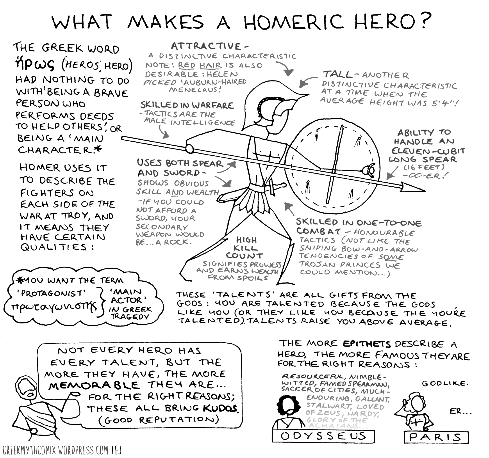 WHAT MAKES A HOMERIC HERO?
THE GREEK WORD
ἥρως (HEROS, HERO)
HAD NOTHING TO DO
WITH 'BEING A BRAVE
PERSON WHO
PERFORMS DEEDS
TO HELP OTHERS', OR
BEING A 'MAIN
CHARACTER.*
HOMER USES IT
TO DESCRIBE THE
FIGHTERS ON
EACH SIDE OF THE
WAR AT TROY, AND
IT MEANS THEY
HAVE CERTAIN
QUALITIES:
ATTRACTIVE -
A DISTINCTIVE CHARACTERISTIC
NOTE: RED HAIR IS ALSO
DESIRABLE: HELEN
PICKED 'AUBURN-HAIRED
MENELAUS'!
TALL - ANOTHER
DISTINCTIVE CHARACTERISTIC
AT A TIME WHEN THE
AVERAGE HEIGHT WAS 5'4"!!
SKILLED IN WARFARE
- TACTICS ARE THE
MALE INTELLIGENCE
ABILITY TO
HANDLE AN
ELEVEN-CUBIT
LONG SPEAR
(16 FEET)
-OO-ER!
USES BOTH SPEAR
AND SWORD -
SHOWS OBVIOUS
SKILL AND WEALTH
- IF YOU COULD
NOT AFFORD A
SWORD, YOUR
SECONDARY
WEAPON WOULD
BE... A ROCK.
SKILLED IN ONE-TO-ONE
COMBAT - HONOURABLE
TACTICS (NOT LIKE THE
SNIPING BOW-AND-ARROW
TENDENCIES OF SOME
TROJAN PRINCES WE
COULD MENTION...)
HIGH
KILL
COUNT
SIGNIFIES PROWESS
AND EARNS WEALTH
FROM SPOILS
*YOU WANT THE TERM
'PROTAGONIST' 'MAIN
ACTOR'
IN GREEK
TRAGEDY
THESE 'TALENTS' ARE ALL GIFTS FROM THE
GODS: YOU ARE TALENTED BECAUSE THE GODS
LIKE YOU (OR THEY LIKE YOU BECAUSE THE YOU'RE
TALENTED). TALENTS RAISE YOU ABOVE AVERAGE.
NOT EVERY HERO HAS
EVERY TALENT, BUT THE
MORE THEY HAVE, THE MORE
MEMORABLE THEY ARE...
FOR THE RIGHT REASONS;
THESE ALL BRING KUDOS.
(GOOD REPUTATION)
THE MORE EPITHETS DESCRIBE A
HERO, THE MORE FAMOUS THEY ARE
FOR THE RIGHT REASONS:
RESOURCEFUL, NIMBLE-
WITTED, FAMED SPEARMAN,
SACKER OF CITIES, MUCH-
ENDURING, GALLANT,
STALWART, LOVED
OF ZEUS, HARDY,
GLORY OF THE
ACHAIANS
GODLIKE.
ER...
ODYSSEUS
PARIS
GREEKMYTHCOMIX.WORDPRESS.COM